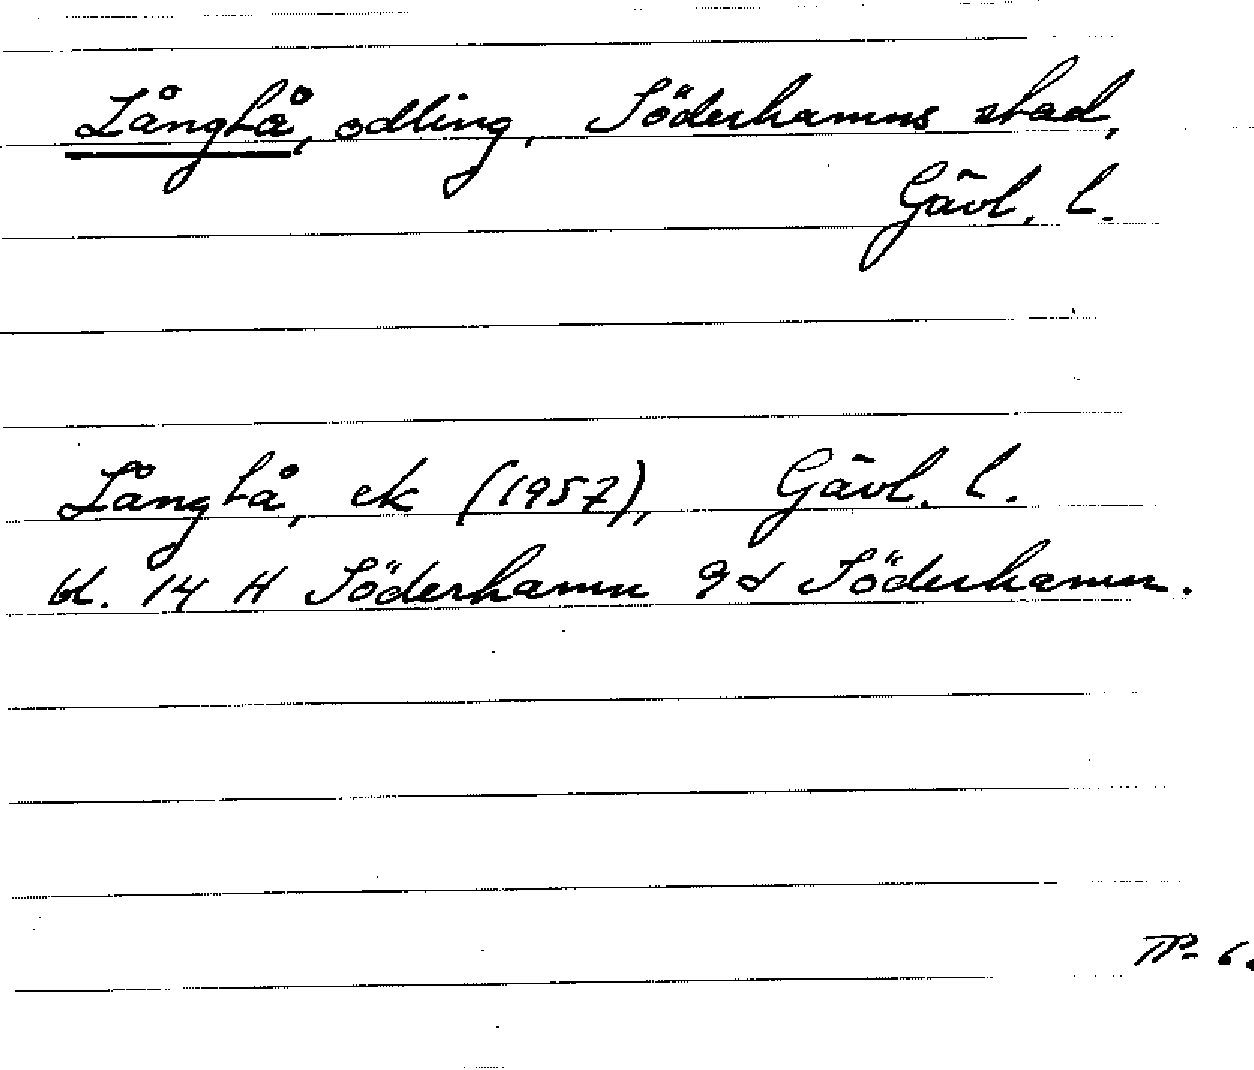 Långtå, odling, Söderhamns stad,
Gävl. l.
Långtå, ek (1957), Gävl. l.
bl. 14 H Söderhamn 9d Söderhamn.